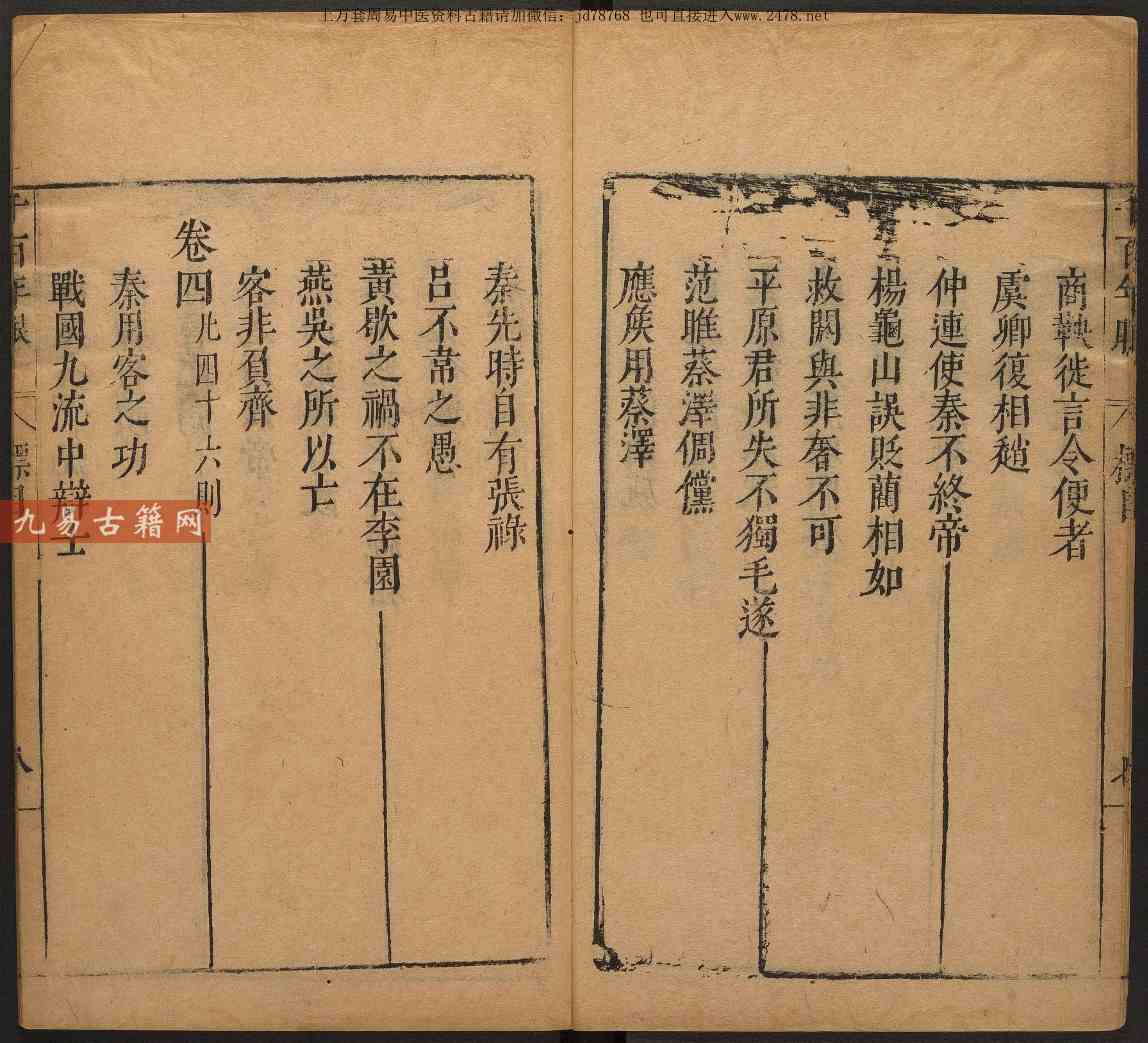 上万套周易中医资料古籍请加微信：jd78768 也可直接进入www.2478.net
商鞅徙言令便者
虞卿復相趙
仲連使秦不終帝
楊龜山誤貶藺相如
救閼與非奢不可
平原君所失不獨毛遂
范睢蔡澤倜儻
應矦用蔡澤
秦先時自有張祿
呂不韋之愚
黃歇之禍不在李園
燕吳之所以亡
客非負齊
卷四凡四十六則
秦用客之功
戰國九流中辯士
八
九易古籍网